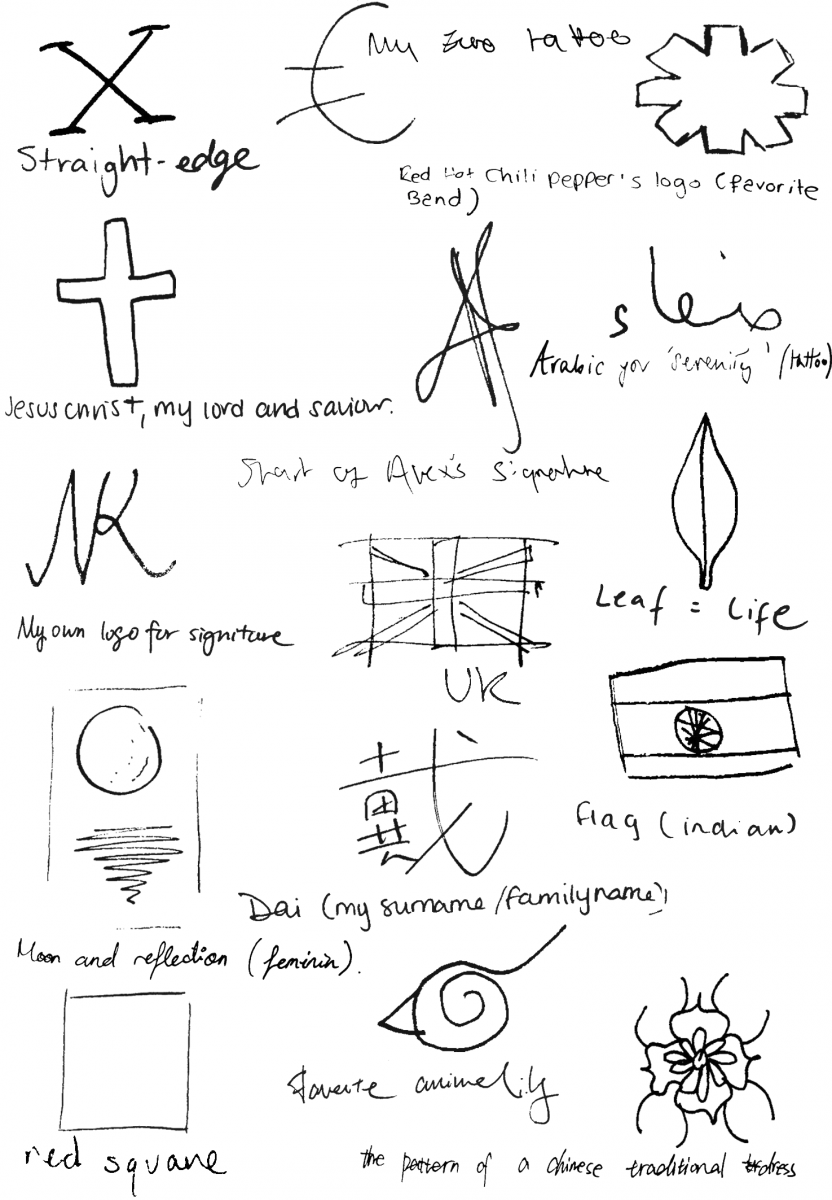 My Euro tattoo
Straight-edge
Red Hot Chili pepper's logo (favorite
Band)
Jesus Christ, my lord and saviour.
Arabic for 'serenity' (tattoo)
Start of Alex's signature
NK
My own logo for signiture
Leaf = Life
UK
戴
Flag (indian)
Dai (my surname/familyname)
Moon and reflection (feminin).
red square
the pattern of a chinese traditional dress